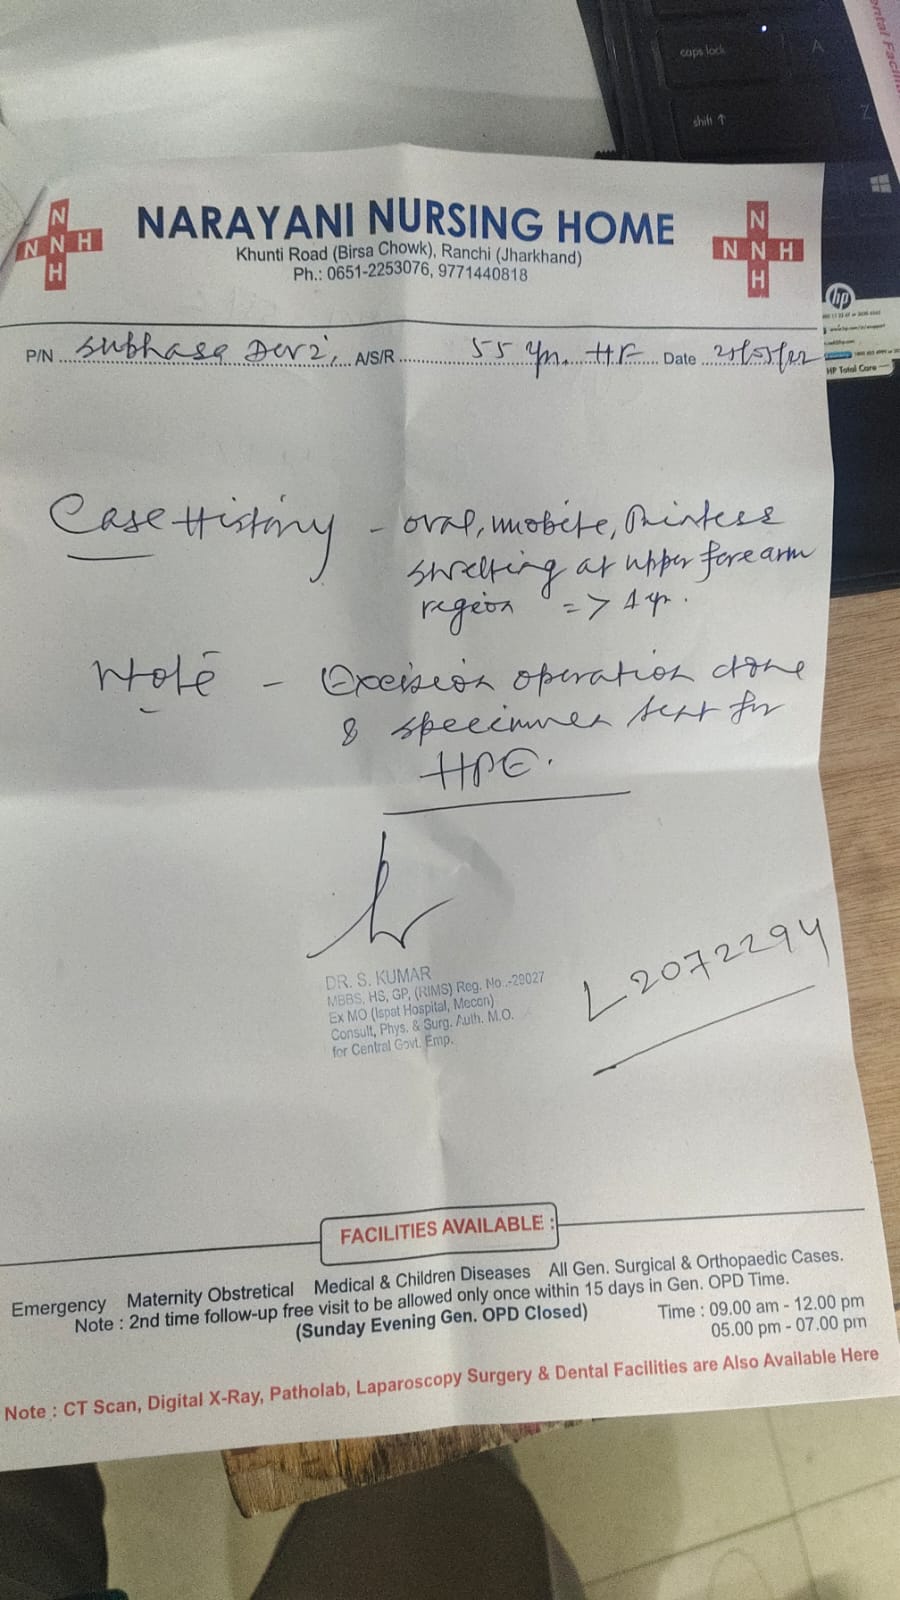 caps lock
A
shift ↑
Z
N
N N H
H
NARAYANI NURSING HOME
Khunti Road (Birsa Chowk), Ranchi (Jharkhand)
Ph.: 0651-2253076, 9771440818
N
N N H
H
hp
HP Total Care
P/N Subhasa Devi, A/S/R 55 yr. H/F Date
Case History - oval, mobile, Painless
swelling at upper forearm
region => 1 yr.
Note - Excision operation done
& specimen sent for
HPE.
DR. S. KUMAR
MBBS, HS, GP, (RIMS) Reg. No.-29027
Ex MO (Ispat Hospital, Mecon)
Consult, Phys. & Surg. Auth. M.O.
for Central Govt. Emp.
L2072294
FACILITIES AVAILABLE :
Emergency Maternity Obstretical Medical & Children Diseases All Gen. Surgical & Orthopaedic Cases.
Note : 2nd time follow-up free visit to be allowed only once within 15 days in Gen. OPD Time.
(Sunday Evening Gen. OPD Closed) Time : 09.00 am - 12.00 pm
05.00 pm - 07.00 pm
Note : CT Scan, Digital X-Ray, Patholab, Laparoscopy Surgery & Dental Facilities are Also Available Here